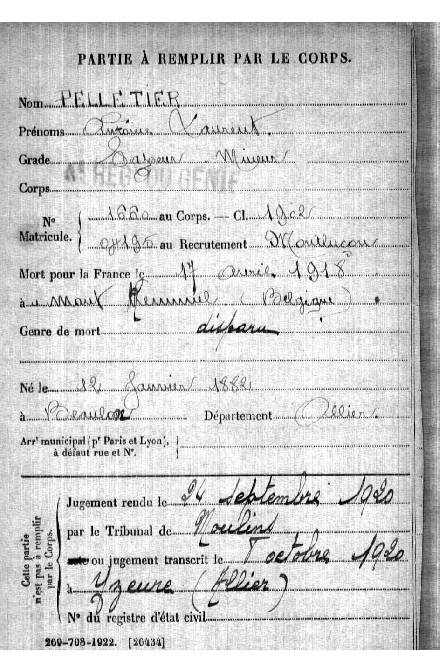 PARTIE À REMPLIR PAR LE CORPS.
Nom PELLETIER
Prénoms Antoine Laurent.
Grade Sapeur Mineur
Corps 4e REG. DU GENIE
N° Matricule. { 1660 au Corps. — Cl. 1902
au Recrutement Montluçon
Mort pour la France le 17 avril 1918
à u mont Kemmel (Belgique)
Genre de mort disparu
Né le 12 Janvier 1882
à Beaulon Département Allier.
Arrt municipal (pr Paris et Lyon),
à défaut rue et N°.
Cette partie n'est pas à remplir par le Corps.
Jugement rendu le 24 septembre 1920
par le Tribunal de Moulins
ou jugement transcrit le 7 octobre 1920
à Yzeure (Allier)
N° du registre d'état civil
269-708-1922. [26434]